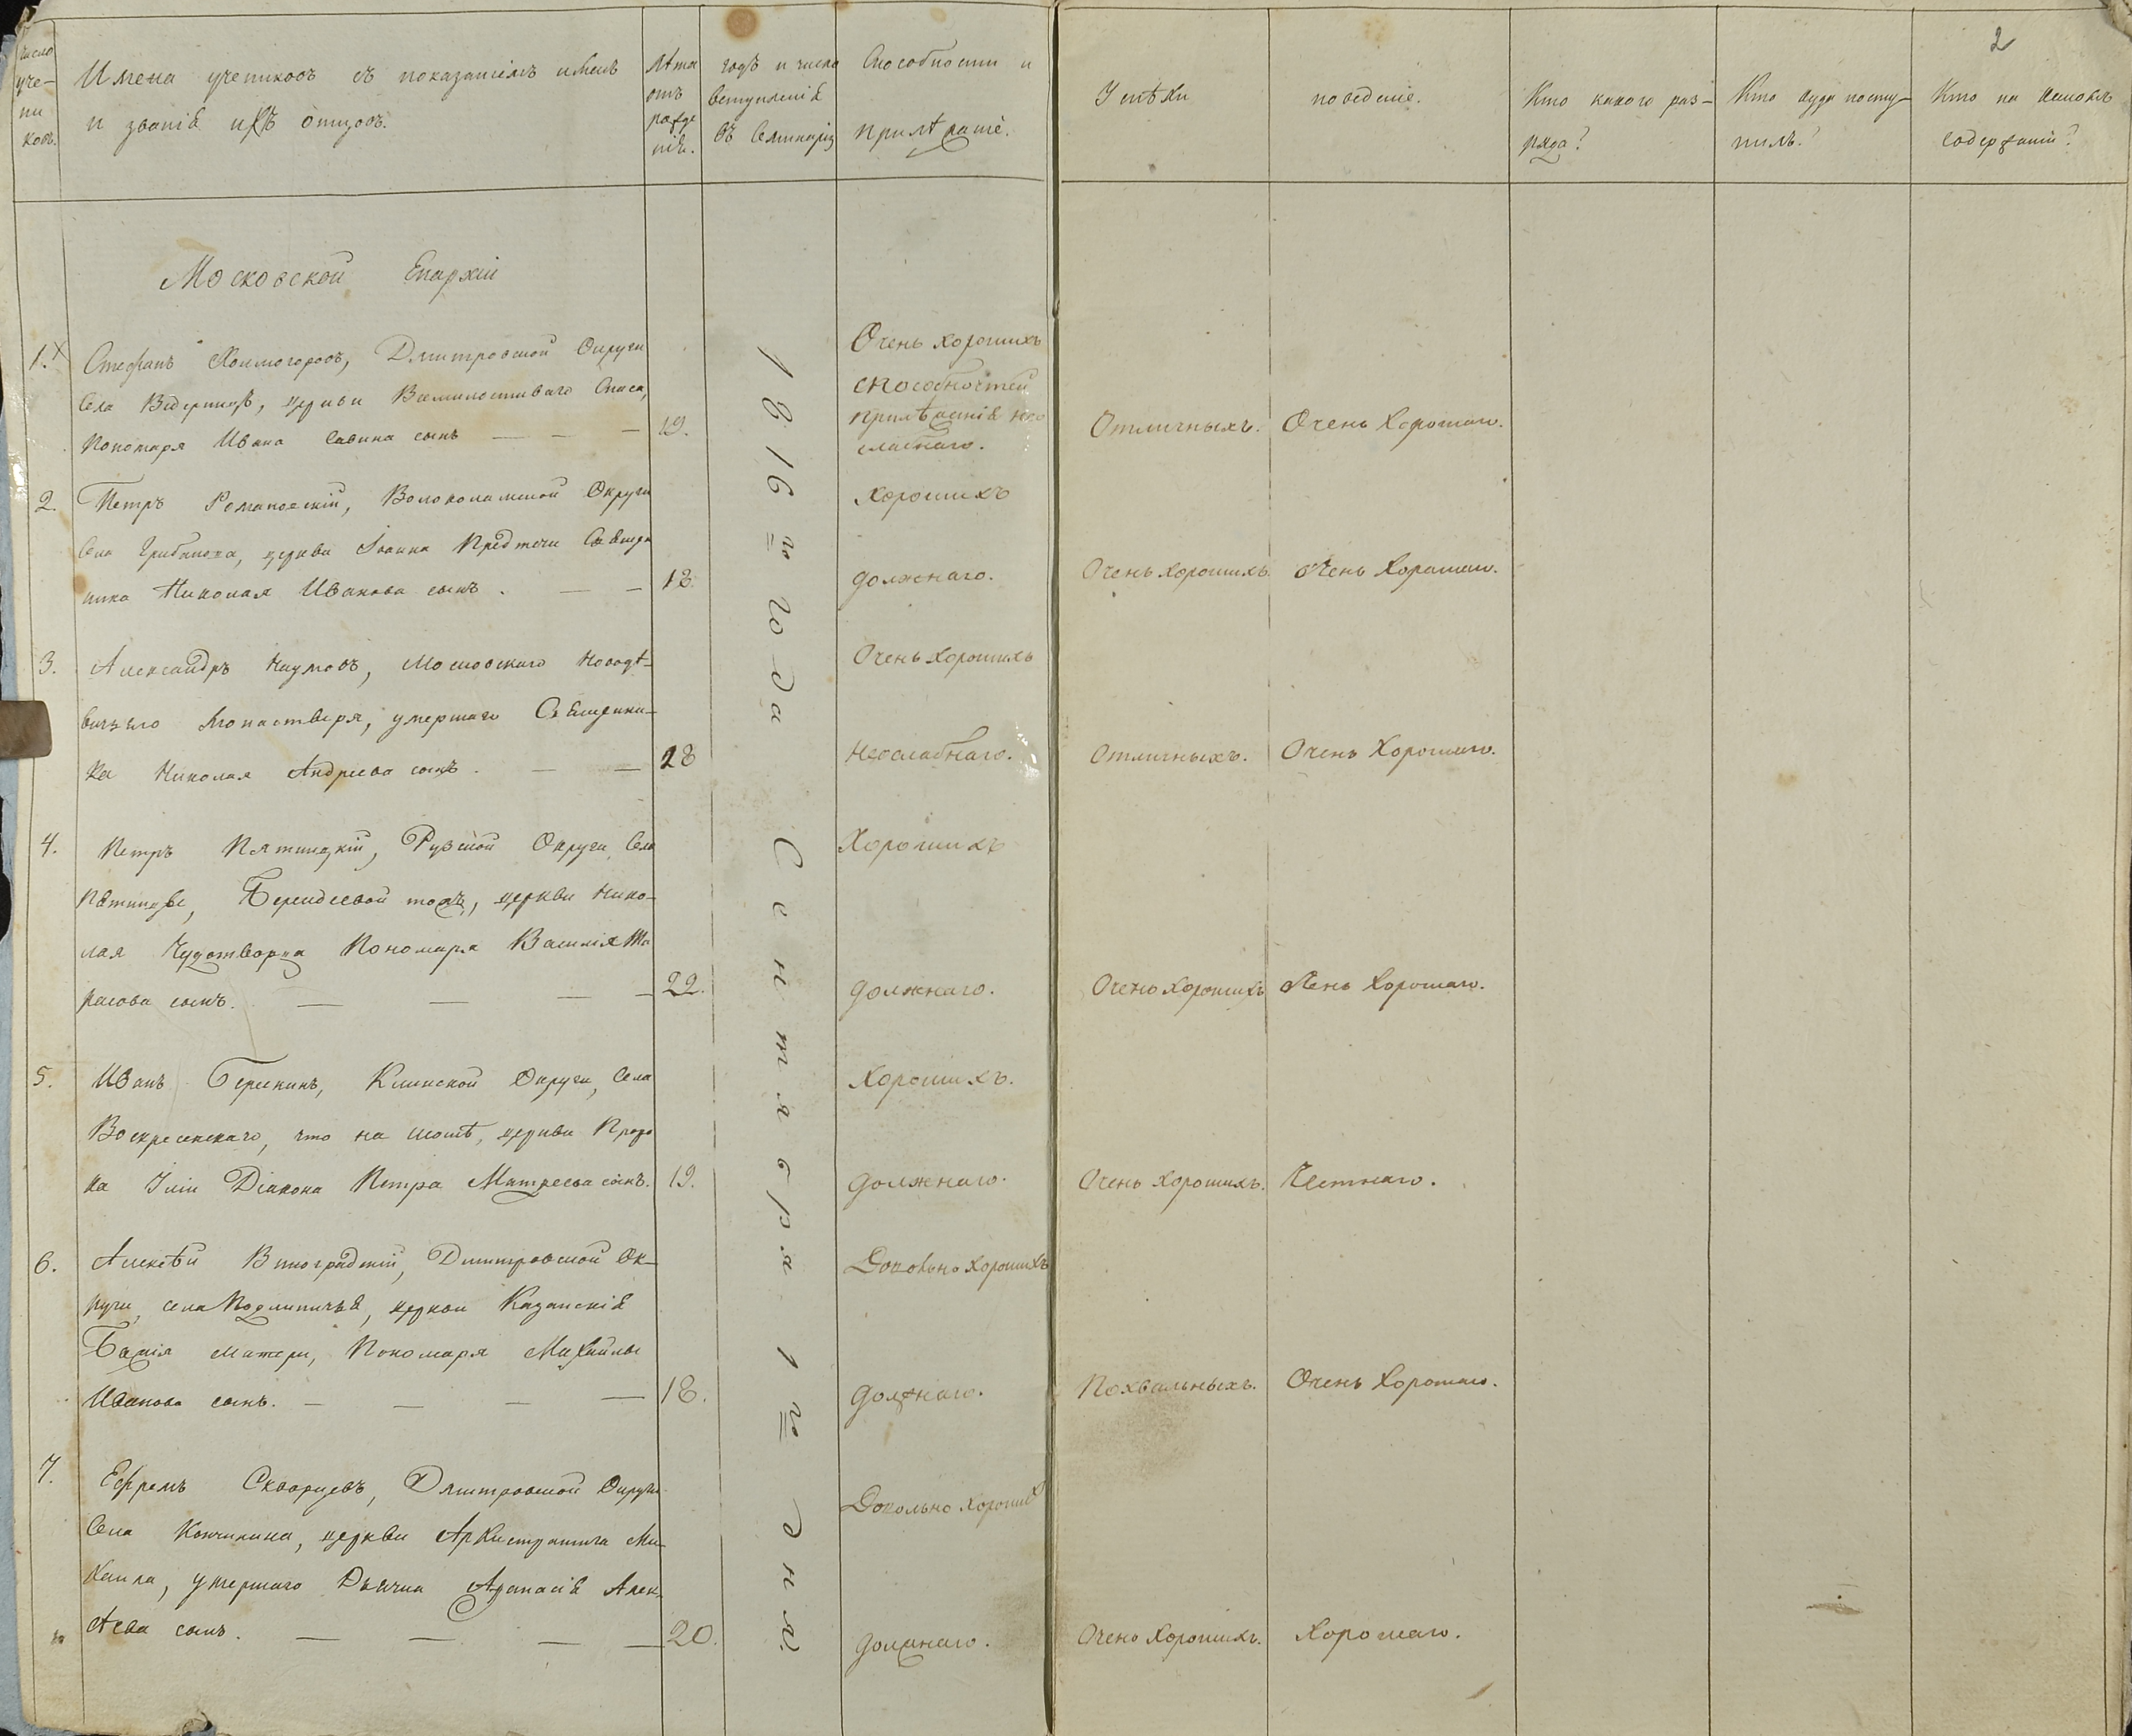 2
Число уче-
ни
ковъ.
Имена учениковъ съ показаніемъ именъ
и званія ихъ отцовъ.
Лѣта
отъ
рожде
нія.
годъ и число
вступленія
въ Семинарію
Способности и
прилѣжаніе.
Успѣхи
поведеніе.
Кто какого раз-
ряда?
Кто куда посту-
пилъ?
Кто на какомъ
содержаніи?
Московской Епархіи
1816го года Сентября 1го дня.
1. Стефанъ Холмогоровъ, Дмитровской Округи
Села церкви Всемилостиваго Спаса,
Пономаря Ивана Савина сынъ — — — 19.
Очень хорошихъ
способностей
прилѣжанія нео
слабнаго.
Отличныхъ. Очень хорошаго.
2. Петръ Романовскій, Волоколамской Округи
Села Грибанова, церкви Іоанна Предтечи Священ
ника Николая Иванова сынъ. — — 18.
Хорошихъ
должнаго.
Очень хорошихъ. Очень хорошаго.
3. Александръ Наумовъ, Московскаго Новодѣ-
вичьяго Монастыря, умершаго Священни-
ка Николая Андреева сынъ. — — 18
Очень хорошихъ
Неослабнаго.
Отличныхъ. Очень хорошаго.
4. Петръ Пятницкій, Рузской Округи Села
Пятницы, Берендеевой тожъ, церкви Нико-
лая Чудотворца Пономаря Василія Та
расова сынъ. — — — — 22.
Хорошихъ
должнаго.
Очень хорошихъ Очень хорошаго.
5. Иванъ Клинской Округи, Села
Воскресенскаго, что на Шошѣ, церкви Проро
ка Іліи Діакона Петра сынъ. 19.
Хорошихъ.
должнаго.
Очень хорошихъ. Честнаго.
6. Алексѣй Виноградскій, Дмитровской Ок-
руги, села Подлипичья, церкви Казанскія
Божія Матери, Пономаря Михайлы
Иванова сынъ. — — — — 18.
Довольно хорошихъ
должнаго.
Похвальныхъ. Очень хорошаго.
7. Ефремъ Скворцевъ, Дмитровской Округи
Села церкви Архистратига Ми-
хаила, умершаго Дьячка Афанасія Алек-
сѣева сынъ. — — — — 20.
Довольно хорошихъ
должнаго.
Очень хорошихъ. Хорошаго.